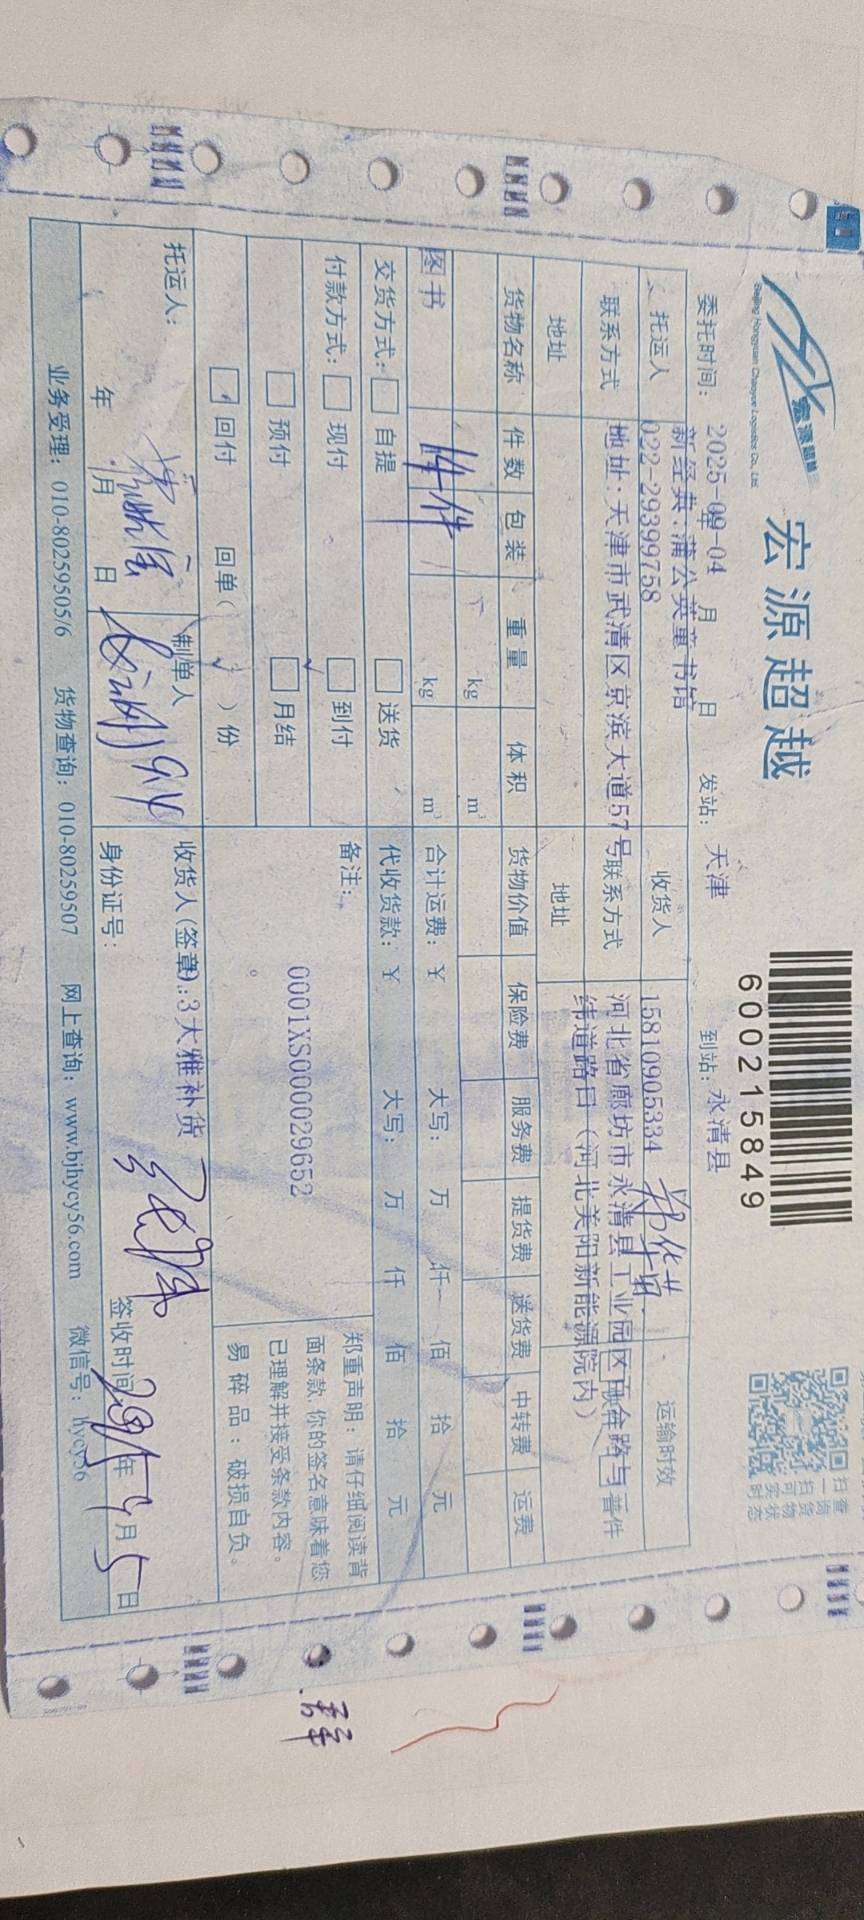 宏源超越
Beijing Hongyuan Chaoyue Logistics Co., Ltd.
宏源超越
600215849
扫查
一询
扫货
可物
实状
时态
委托时间: 2025-09-04 年 月 日 发站: 天津 到站: 永清县
托运人 新经典:蒲公英童书馆 收货人 15810905334 运输时效
联系方式 022-29399758 联系方式 河北省廊坊市永清县工业园区百合路与普件
地址 地址:天津市武清区京滨大道57号 地址 纬道路口(河北美阳新能源院内)
货物名称 件数 包装 重量 体积 货物价值 保险费 服务费 提货费 送货费 中转费 运费
kg m³
图书 14件 kg m³ 合计运费: ¥ 大写: 万 仟 佰 拾 元
交货方式: 自提 送货 代收货款: ¥ 大写: 万 仟 佰 拾 元
付款方式: 现付 到付 备注:
预付 月结 0001XS000029652
回付 回单( ✓ )份
郑重声明:请仔细阅读背
面条款,你的签名意味着您
已理解并接受条款内容。
易碎品:破损自负。
托运人: 制单人 收货人(签章): 3大雅补货
年 月 日 身份证号: 签收时间 年 9月 5日
业务受理: 010-80259505/6 货物查询: 010-80259507 网上查询: www.bjhycy56.com 微信号: hycy56